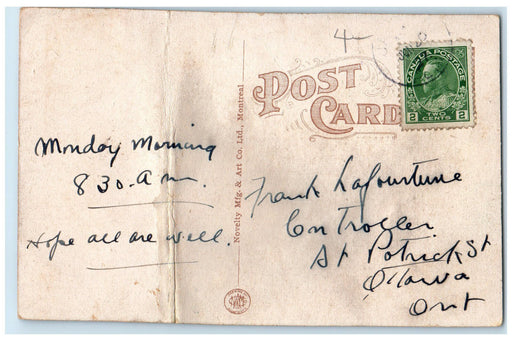 4
POST
CARD
CANADA POSTAGE
2 TWO CENTS 2
Novelty Mfg. & Art Co., Ltd., Montreal
Monday Morning
8 30 a m.
Hope all are well.
Frank Lafourtune
Controller
St Patrick St
Ottawa
Ont